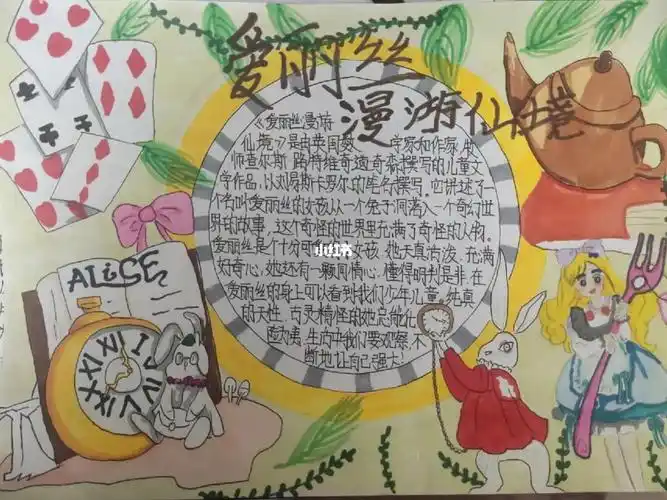 爱丽丝
漫游仙境
《爱丽丝漫游
仙境》是由英国数 学家和作家、牧
师查尔斯·路特维奇·道奇森撰写的儿童文
学作品,以刘易斯·卡罗尔的笔名撰写。它讲述了一
个名叫爱丽丝的女孩从一个兔子洞落入一个奇幻世
界的故事。这个奇怪的世界里充满了奇怪的人物。
爱丽丝是个十分可 女孩,她天真活泼,充满
好奇心,她还有一颗同情心,懂得明判是非,在
爱丽丝的身上可以看到我们少年儿童。纯真
的天性,古灵精怪的她总能化
险为夷,生活中我们要观察,不
断地让自己强大!
小红书
ALiCE
XII
I
II
V
VI
VII
IX
X
XI